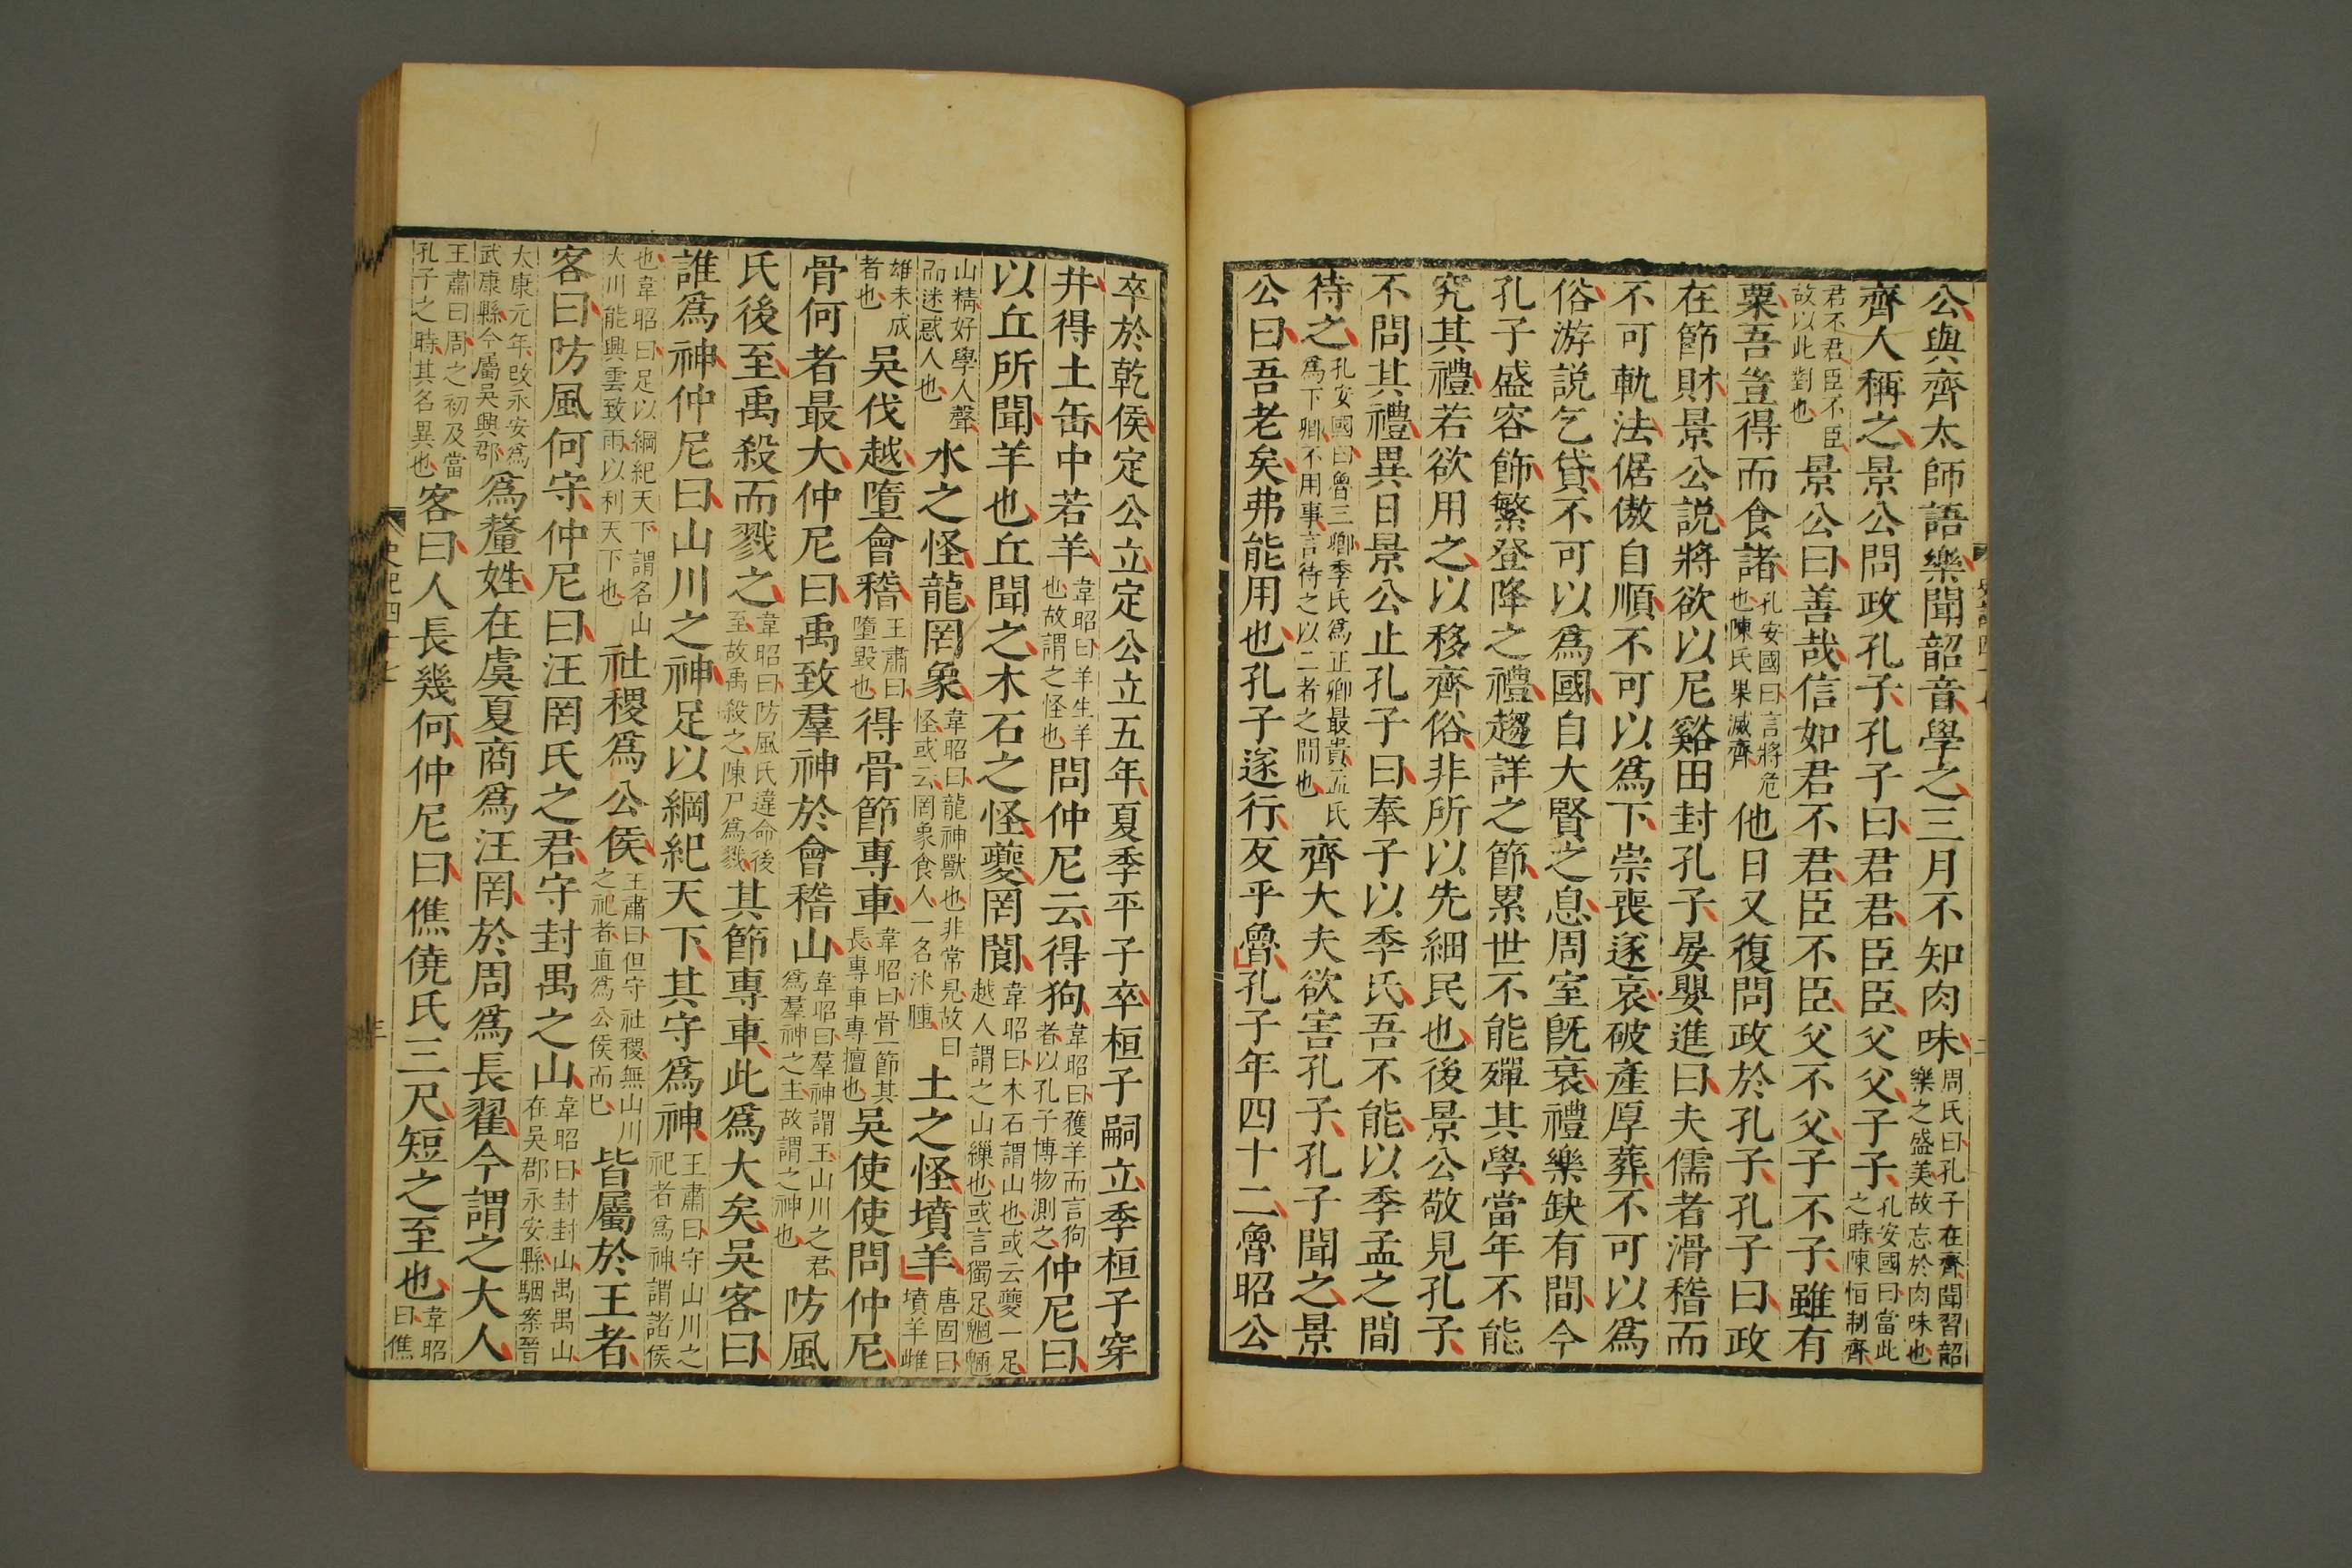 公與齊太師語樂聞韶音學之三月不知肉味周氏曰孔子在齊聞習韶樂之盛美故忘於肉味也
齊人稱之景公問政孔子孔子曰君君臣臣父父子子孔安國曰當此之時陳恒制齊
君不君臣不臣故以此對也景公曰善哉信如君不君臣不臣父不父子不子雖有
粟吾豈得而食諸孔安國曰言將危也陳氏果滅齊他日又復問政於孔子孔子曰政
在節財景公説將欲以尼谿田封孔子晏嬰進曰夫儒者滑稽而
不可軌法倨傲自順不可以爲下崇喪遂哀破產厚葬不可以爲
俗游説乞貸不可以爲國自大賢之息周室旣衰禮樂缺有閒今
孔子盛容飾繁登降之禮趨詳之節累世不能殫其學當年不能
究其禮君欲用之以移齊俗非所以先細民也後景公敬見孔子
不問其禮異日景公止孔子曰奉子以季氏吾不能以季孟之間
待之孔安國曰魯三卿季氏爲正卿最貴孟氏爲下卿不用事言待之以二者之間也齊大夫欲害孔子孔子聞之景
公曰吾老矣弗能用也孔子遂行反乎魯孔子年四十二魯昭公
卒於乾侯定公立定公立五年夏季平子卒桓子嗣立季桓子穿
井得土缶中若羊韋昭曰羊生羊也故謂之怪也問仲尼云得狗韋昭曰獲羊而言狗者以孔子博物測之仲尼曰
以丘所聞羊也丘聞之木石之怪夔罔閬韋昭曰木石謂山也或云夔一足越人謂之山繅也或言獨足魍魎
山精好學人聲而迷惑人也水之怪龍罔象韋昭曰龍神獸也非常見故曰怪或云罔象食人一名沐腫土之怪墳羊唐固曰墳羊雌
雄未成者也吳伐越墮會稽王肅曰墮毀也得骨節專車韋昭曰骨一節其長專車專擅也吳使使問仲尼
骨何者最大仲尼曰禹致羣神於會稽山韋昭曰羣神謂主山川之君爲羣神之主故謂之神也防風
氏後至禹殺而戮之韋昭曰防風氏違命後至故禹殺之陳尸爲戮其節專車此爲大矣吳客曰
誰爲神仲尼曰山川之神足以綱紀天下其守爲神王肅曰守山川之祀者爲神謂諸侯
也韋昭曰足以綱紀天下謂名山大川能興雲致雨以利天下也社稷爲公侯王肅曰但守社稷無山川之祀者直爲公侯而已皆屬於王者
客曰防風何守仲尼曰汪罔氏之君守封禺之山韋昭曰封封山禺禺山在吳郡永安縣駰案晉
太康元年改永安爲武康縣今屬吳興郡爲釐姓在虞夏商爲汪罔於周爲長翟今謂之大人
王肅曰周之初及當孔子之時其名異也客曰人長幾何仲尼曰僬僥氏三尺短之至也韋昭曰僬
史記四十七
三